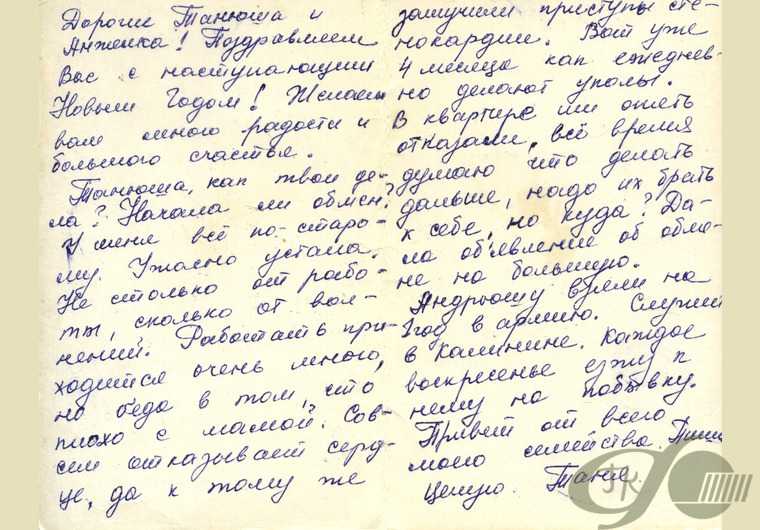 Дорогие Танюша и
Анжелка! Поздравляем
Вас с наступающим
Новым Годом! Желаем
вам много радости и
большого счастья.
Танюша, как твои де-
ла? Начала ли обмен?
У меня всё по-старо-
му. Ужасно устала.
Не столько от рабо-
ты, сколько от вол-
нений. Работать при-
ходится очень много,
но беда в том, что
плохо с мамой. Сов-
сем отказывает серд-
це, да к тому же
замучили приступы сте-
нокардии. Вот уже
4 месяца как ежеднев-
но делают уколы.
В квартире им опять
отказали, всё время
думаю что делать
дальше, надо их брать
к себе, но куда? Да-
ла объявление об обме-
не на большую.
Андрюшу взяли на
1 год в армию. Служит
в Калинине. Каждое
воскресенье езжу к
нему на побывку.
Привет от всего
моего семейства. Пиши
Целую. Таня.
ГК